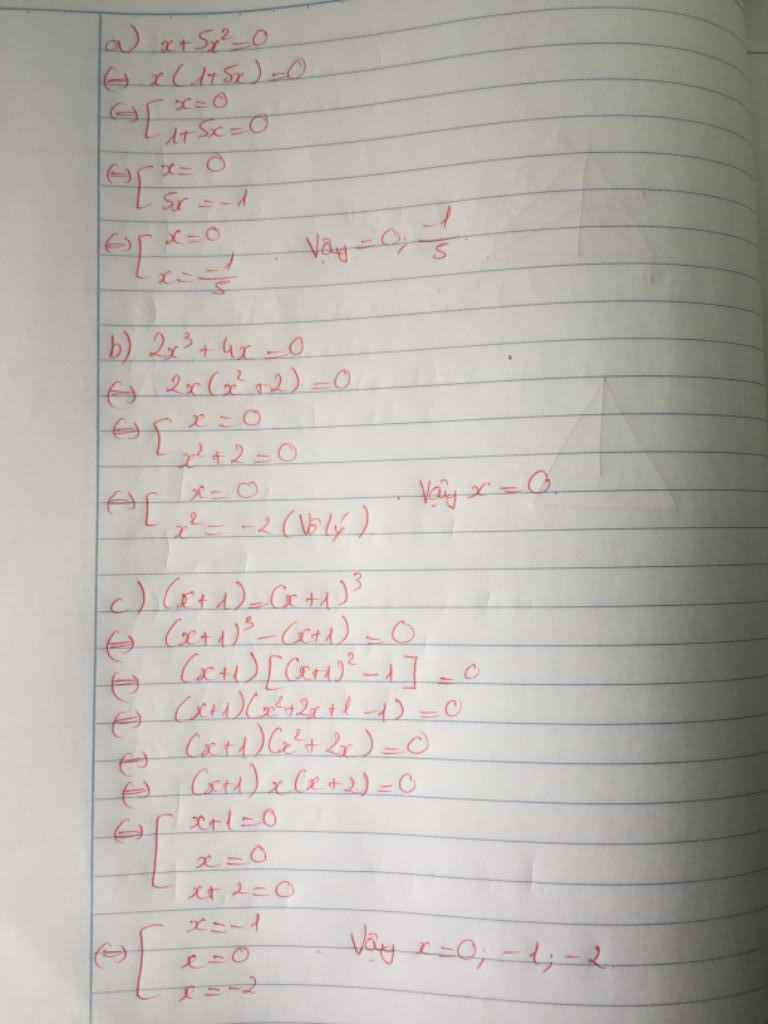 a) x+5x²=0
⇔ x(1+5x)=0
⇔ [ x=0
1+5x=0
⇔ [ x=0
5x=-1
⇔ [ x=0 . Vậy =0; -1/5
x=-1/5
b) 2x³+4x=0
⇔ 2x(x²+2)=0
⇔ [ x=0
x²+2=0
⇔ [ x=0 . Vậy x=0.
x²=-2 (Vô lý)
c) (x+1)=(x+1)³
⇔ (x+1)³-(x+1)=0
⇔ (x+1)[(x+1)²-1]=0
⇔ (x+1)(x²+2x+1-1)=0
⇔ (x+1)(x²+2x)=0
⇔ (x+1)x(x+2)=0
⇔ [ x+1=0
x=0
x+2=0
⇔ [ x=-1
x=0 . Vậy x=0; -1; -2.
x=-2